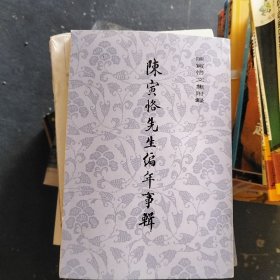 陳寅恪文集附録
陳寅恪先生編年事輯